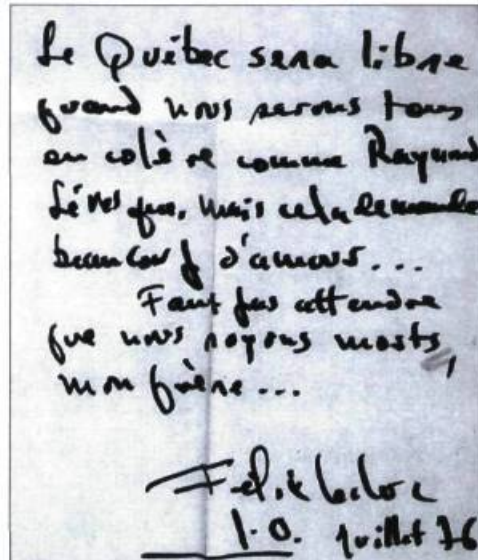 Le Québec sera libre
quand nous serons tous
en colère comme Raymond
Lévesque, mais cela demande
beaucoup d'amour...
Faut pas attendre
que nous soyons morts,
mon frère...
Félix Leclerc
I.O. juillet 76